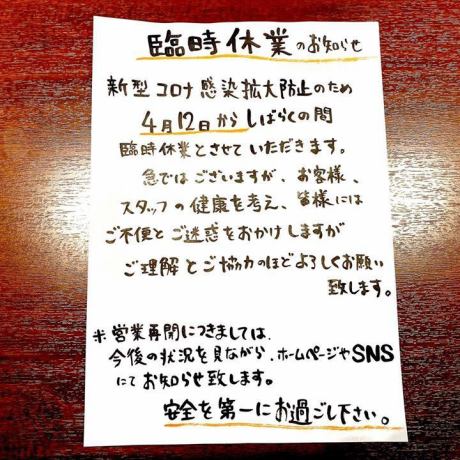 臨時休業のお知らせ
新型コロナ感染拡大防止のため
4月12日からしばらくの間
臨時休業とさせていただきます。
急ではございますが、お客様、
スタッフの健康を考え、皆様には
ご不便とご迷惑をおかけしますが
ご理解とご協力のほどよろしくお願い
致します。
※営業再開につきましては、
今後の状況を見ながら、ホームページやSNS
にてお知らせ致します。
安全を第一にお過ごし下さい。